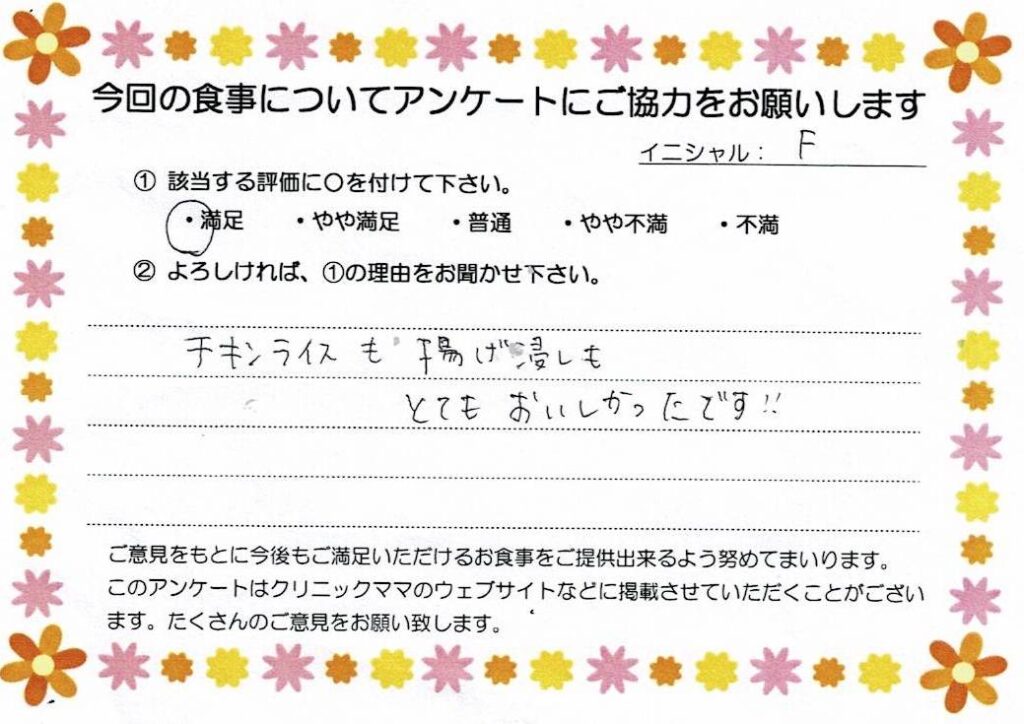 今回の食事についてアンケートにご協力をお願いします
イニシャル： F
① 該当する評価に〇を付けて下さい。
・満足 ・やや満足 ・普通 ・やや不満 ・不満
② よろしければ、①の理由をお聞かせ下さい。
チキンライスも 揚げ浸しも
とてもおいしかったです!!
ご意見をもとに今後もご満足いただけるお食事をご提供出来るよう努めてまいります。
このアンケートはクリニックママのウェブサイトなどに掲載させていただくことがござい
ます。たくさんのご意見をお願い致します。